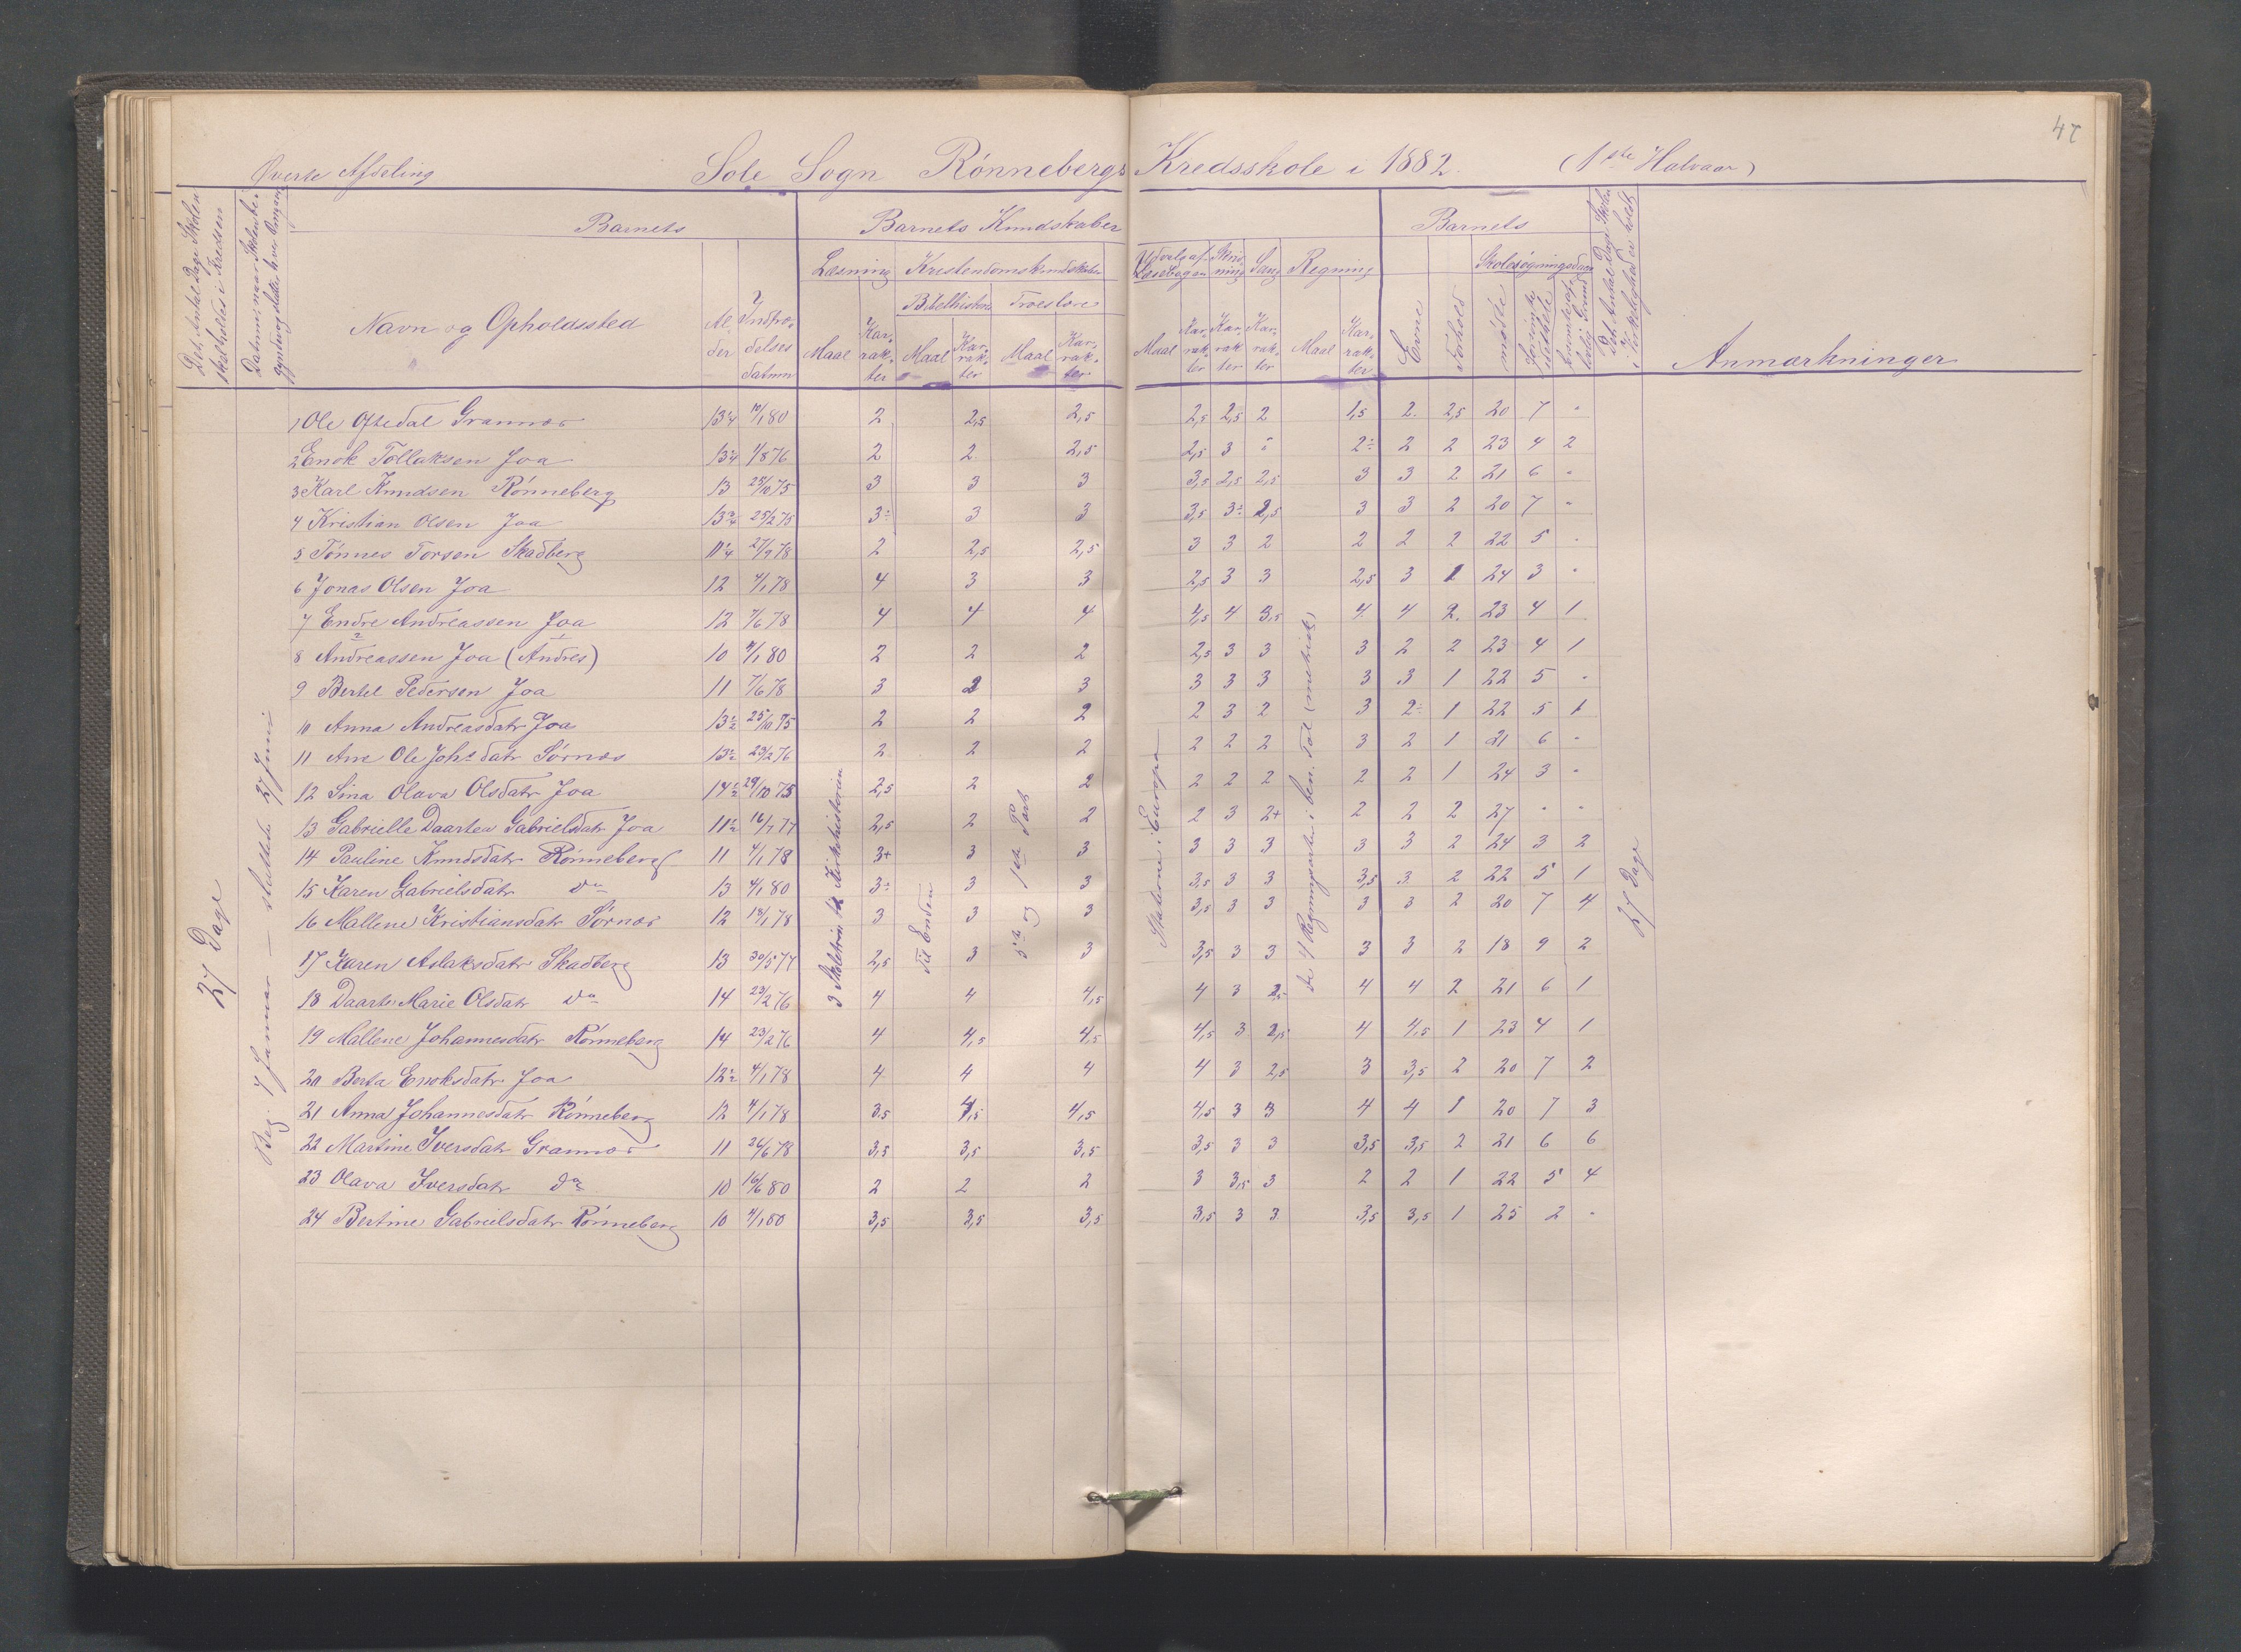 47
Øverste Afdeling Sole Sogn Rønnebergs Kredsskole i 1882. (1ste Halvaar)
Det Antal Dage Skolen skal holdes i Kredsen
Datum, naar Skolen begyndte og slutter hver Omgang
Barnets
Navn og Opholdssted
Alder
Indtrædelses datum
Barnets Kundskaber
Læsning
Kristendomskundskaber
Bibelhistorie Troeslære
Maal Karakter Maal Karakter Maal Karakter
Udvalg af Læsebogen Skrivning Sang Regning
Maal Karakter Karakter Karakter Maal Karakter
Barnets
Evne Forhold
Skolesøgningsdage
mødte forsømte
Det Antal Dage Skolen i Virkeligheden er holdt
Anmærkninger
27 Dage
Beg. 7 Januar — sluttede 27 Juni
3 Skoletrin til Kirkehistorien
Til Enden
5te og 1ste Part
Staterne i Europa
de 4 Regningsarter i ben. Tal (metrisk)
27 Dage
1 Ole Oftedal Grannes 13¼ 10/1 80 2 2,5 2,5 2,5 2,5 2 1,5 2. 2,5 20 7 "
2 Enok Tollaksen Joa 13¼ 1/8 76 2 2 2,5 2,5 3 " 2÷ 2 2 23 4 2
3 Karl Knudsen Rønneberg 13 25/10 75 3 3 3 3,5 2,5 2,5 3 3 2 21 6 "
4 Kristian Olsen Joa 13¾ 25/2 75 3÷ 3 3 3,5 3÷ 2,5 3 3 2 20 7 "
5 Tønnes Torsen Skadberg 11¼ 27/9 78 2 2,5 2,5 3 3 2 2 2 2 22 5 "
6 Jonas Olsen Joa 12 4/1 78 4 3 3 2,5 3 3 2,5 3 1 24 3 "
7 Endre Andreassen Joa 12 7/6 78 4 4 4 4,5 4 3,5 4 4 2. 23 4 1
8 Andreassen Joa (Andres) 10 4/1 80 2 2 2 2,5 3 3 3 2 2 23 4 1
9 Bertel Pedersen Joa 11 7/6 78 3 2 3 3 3 3 3 3 1 22 5 "
10 Anna Andreasdatr Joa 13½ 25/10 75 2 2 2 2 3 2 3 2÷ 1 22 5 1
11 Ane Ole Johs datr Sørnes 13½ 23/2 76 2 2 2 2 2 2 3 2 1 21 6 "
12 Sina Olava Olsdatr Joa 14½ 29/10 75 2,5 2 2 2 2 2 2 2 1 24 3 "
13 Gabrielle Daartea Gabrielsdatr Joa 11½ 16/7 77 2,5 2 2 2 3 2+ 2 2 2 27 " "
14 Pauline Knudsdatr Rønneberg 11 4/1 78 3+ 3 3 3 3 3 3 3 2 24 3 2
15 Karen Gabrielsdatr do 13 4/1 80 3÷ 3 3 3,5 3 3 3,5 3 2 22 5 1
16 Mallene Kristiansdatr Sørnes 12 18/1 78 3 3 3 3,5 3 3 3 3 2 20 7 4
17 Karen Aslaksdatr Skadberg 13 30/5 77 2,5 3 3 3,5 3 3 3 3 2 18 9 2
18 Daarte Marie Olsdatr do 14 23/2 76 4 4 4,5 4 3 2,5 4 4 2 21 6 1
19 Mallene Johannesdatr Rønneberg 14 23/2 76 4 4,5 4,5 4,5 3 2,5 4 4,5 1 23 4 1
20 Berta Enoksdatr Joa 12½ 4/1 78 4 4 4 4 3 2,5 3 3,5 2 20 7 2
21 Anna Johannesdatr Rønneberg 12 4/1 78 3,5 4,5 4,5 4,5 3 3 4 4 1 20 7 3
22 Martine Iversdatr Grannes 11 26/6 78 3,5 3,5 3,5 3,5 3 3 3,5 3,5 2 21 6 6
23 Olava Iversdatr do 10 16/6 80 2 2 2 3 3,5 3 2 2 1 22 5 4
24 Bertine Gabrielsdatr Rønneberg 10 4/1 80 3,5 3,5 3,5 3,5 3 3 3,5 3,5 1 25 2 "